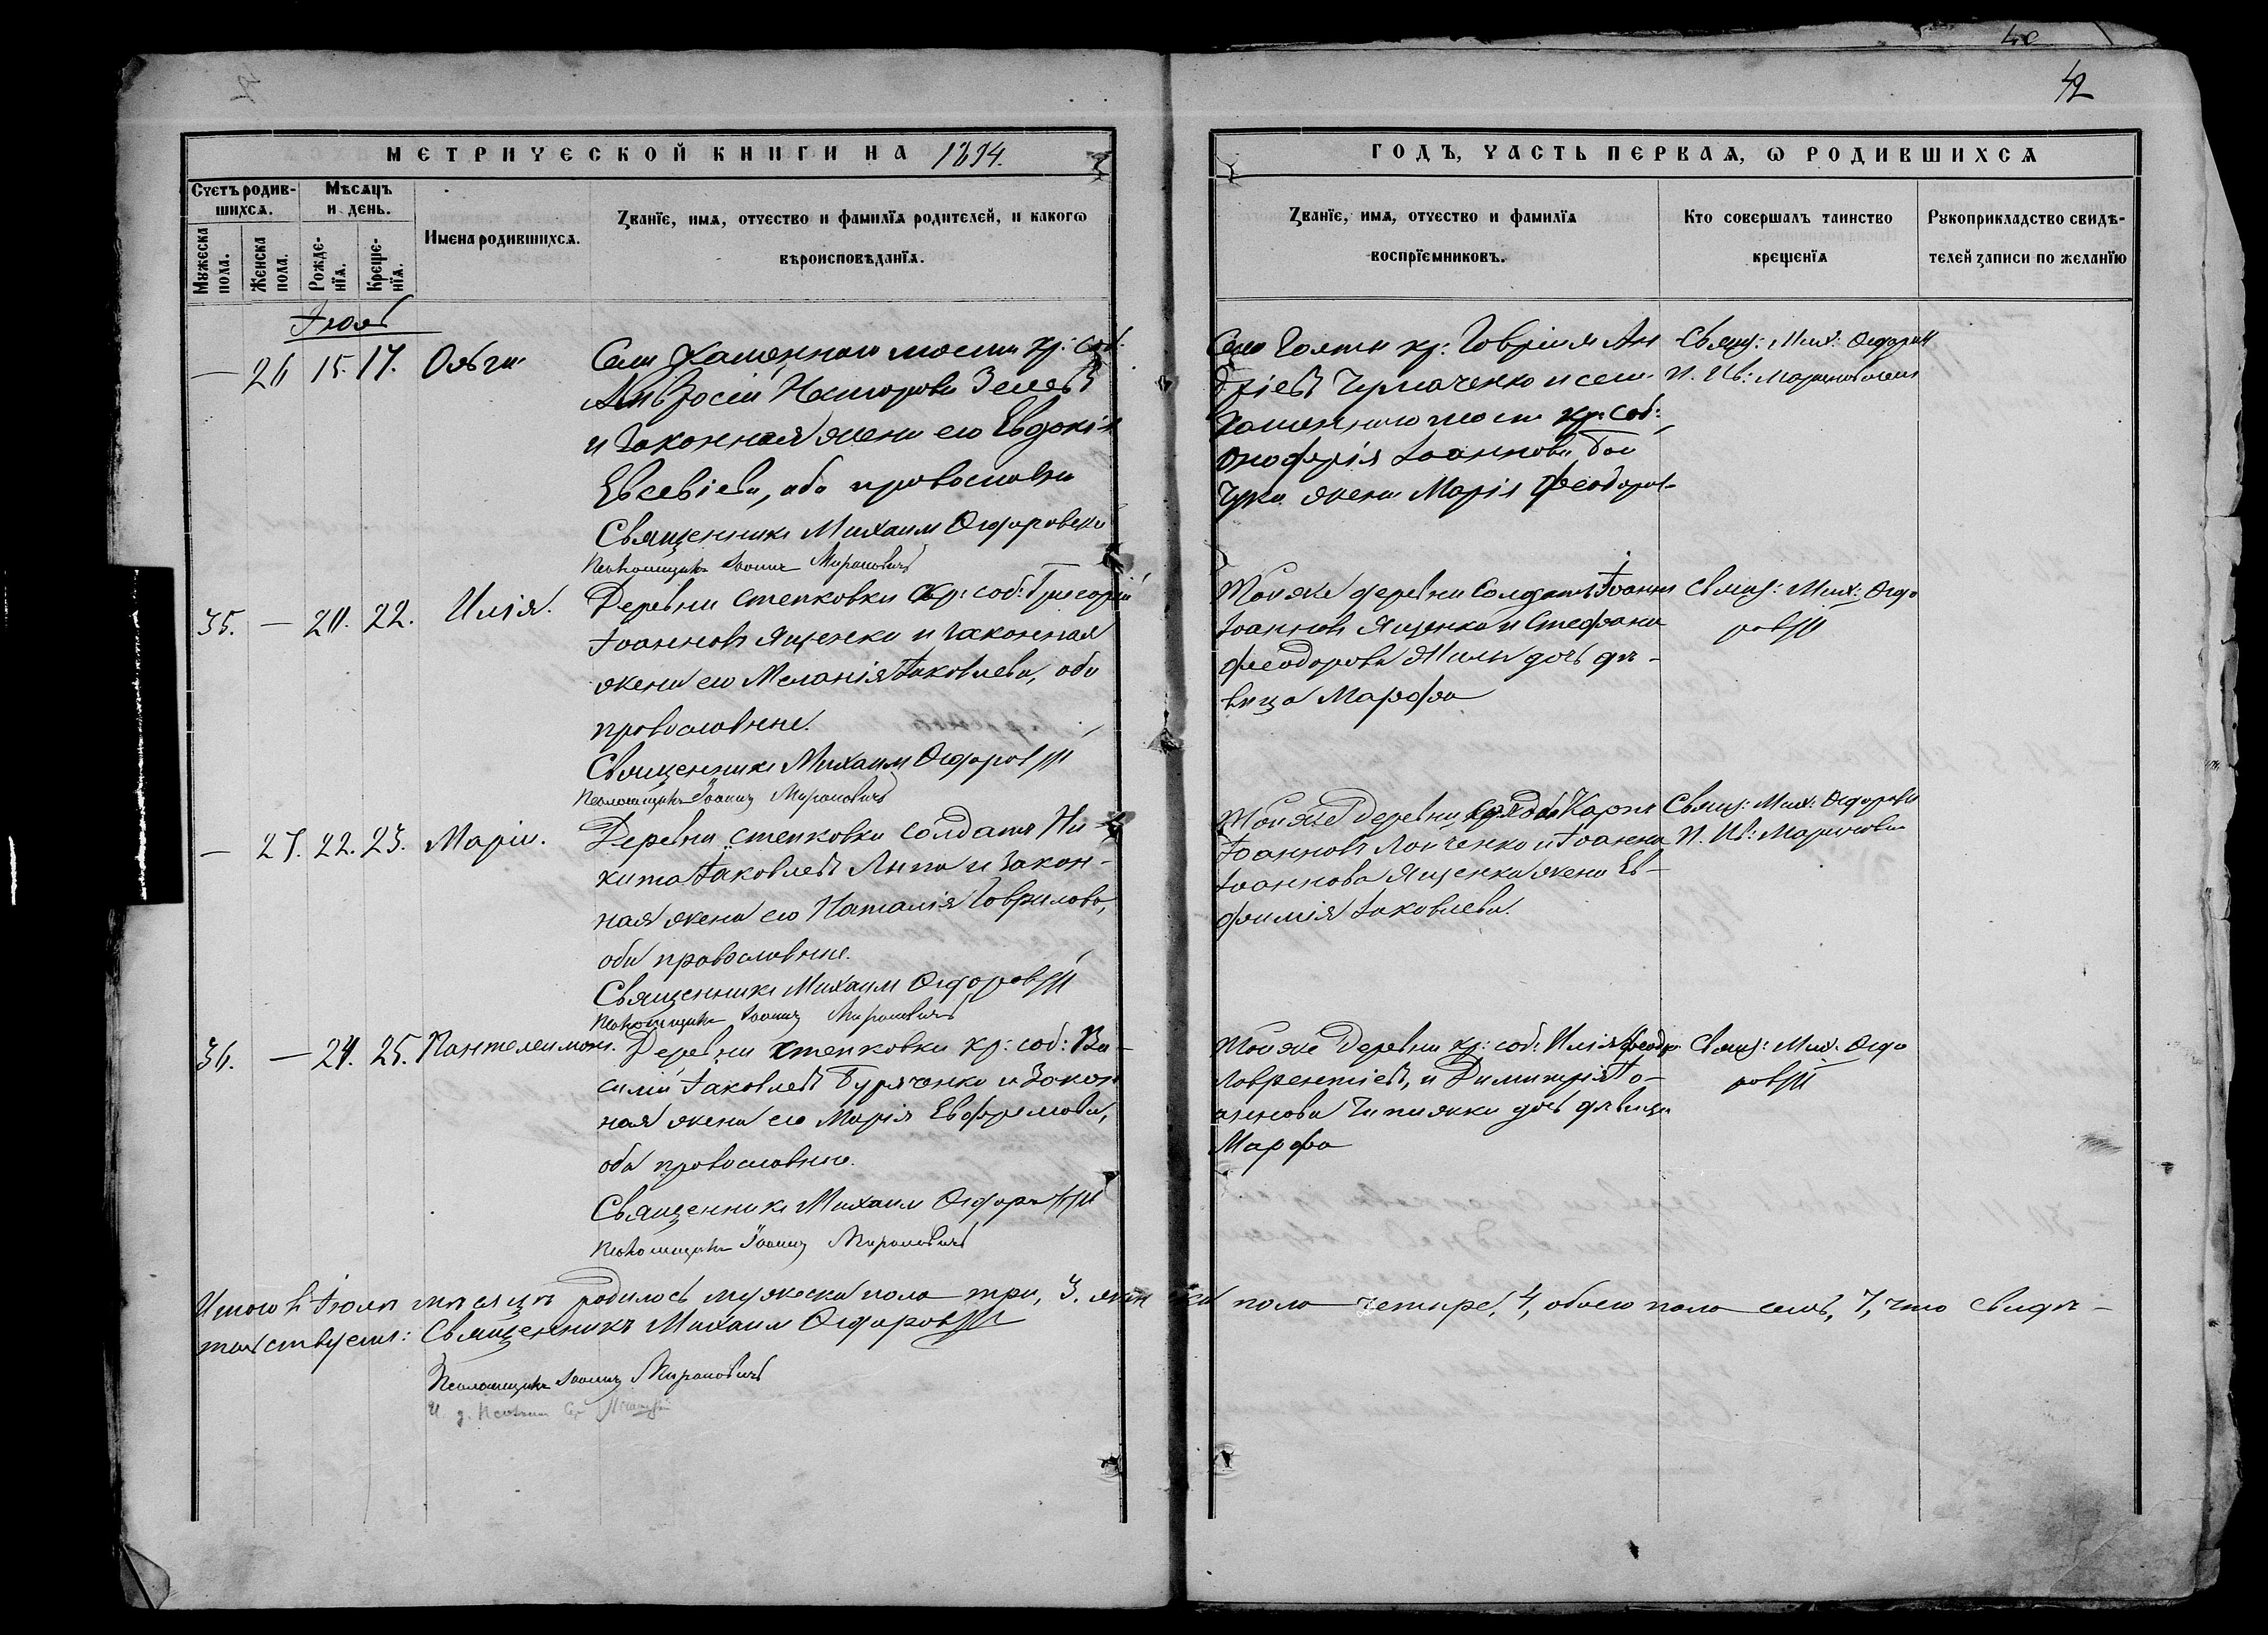 42
МЕТРИЧЕСКОЙ КНИГИ НА 1894.
ГОДЪ, ЧАСТЬ ПЕРВАЯ, Ѡ РОДИВШИХСЯ
Счетъ родив-
шихся.
Мѣсяцъ
и день.
Мужеска
пола.
Женска
пола.
Рожде-
нїя.
Креще-
нїя.
Имена родившихся.
Званїе, имя, отчество и фамилїя родителей, и какогѡ
вѣроисповѣданїя.
Званїе, имя, отчество и фамилїя
воспрїемниковъ.
Кто совершалъ таинство
крещенїя
Рукоприкладство свидѣ-
телей записи по желанїю
Іюль
— 26 15. 17. Ольга
Села Каменнаго моста кр: соб:
Амвросій Несторовъ
и законная жена его Евдокія
Евсевіева, оба православны
Священникъ Михаилъ Сидоровскій
Псаломщикъ Іоаннъ Мариновичъ
Села Голты кр: Гавріилъ Ан
дріевъ Чумаченко и села
Каменнаго моста кр: соб:
Іоаннова Бой
чука жена Марія Феодоров-
Свящ: Мих: Сидоров
П. Ив: Маринович
35. — 20. 22. Илія.
Деревни Степковки кр: соб: Григорій
Іоанновъ Яценко и законная
жена его Меланія Іаковлева, оба
православные.
Священникъ Михаилъ Сидоровскій
Псаломщикъ Іоаннъ Мариновичъ
Той же деревни солдатъ Іоаннъ
Іоанновъ Яценко и Стефана
Феодорова дочь дѣ-
вица Марфа
Свящ: Мих: Сидо
ровскій
— 27. 22. 23. Марія.
Деревни Степковки солдатъ Ни-
кита Іаковлевъ Липа и закон-
ная жена его Наталія Гаврилова,
оба православные.
Священникъ Михаилъ Сидоровскій
Псаломщикъ Іоаннъ Мариновичъ
Той же деревни Карпъ
Іоанновъ Лойченко и Іоанна
Іоаннова Яценка жена Ев-
фимія Іаковлева.
Свящ: Мих: Сидоровск
П. Ив: Маринович
36. — 24. 25. Пантелеимонъ.
Деревни Степковки кр: соб: Ва-
силій Іаковлевъ Буряченко и закон
ная жена его Марія Евфремова,
оба православные.
Священникъ Михаилъ Сидоровскій
Псаломщикъ Іоаннъ Мариновичъ
Той же деревни кр: соб: Илія
Лаврентіевъ, и Димитрія Іо-
аннова дочь дѣвица
Марфа
Свящ: Мих: Сидо
ровскій
Итого въ Іюлѣ мѣсяцѣ родилось мужеска пола три, 3. женска пола четыре, 4, обоего пола семь, 7, что свидѣ-
тельствуемъ: Священникъ Михаилъ Сидоровскій
Псаломщикъ Іоаннъ Мариновичъ